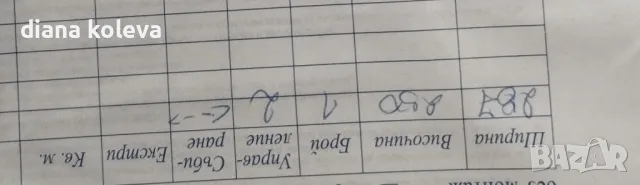 diana koleva
без монтаж
Ширина Височина Брой Управ-ление Съби-ране Екстри Кв. м.
287 230 1 2 <-->
BAZAR